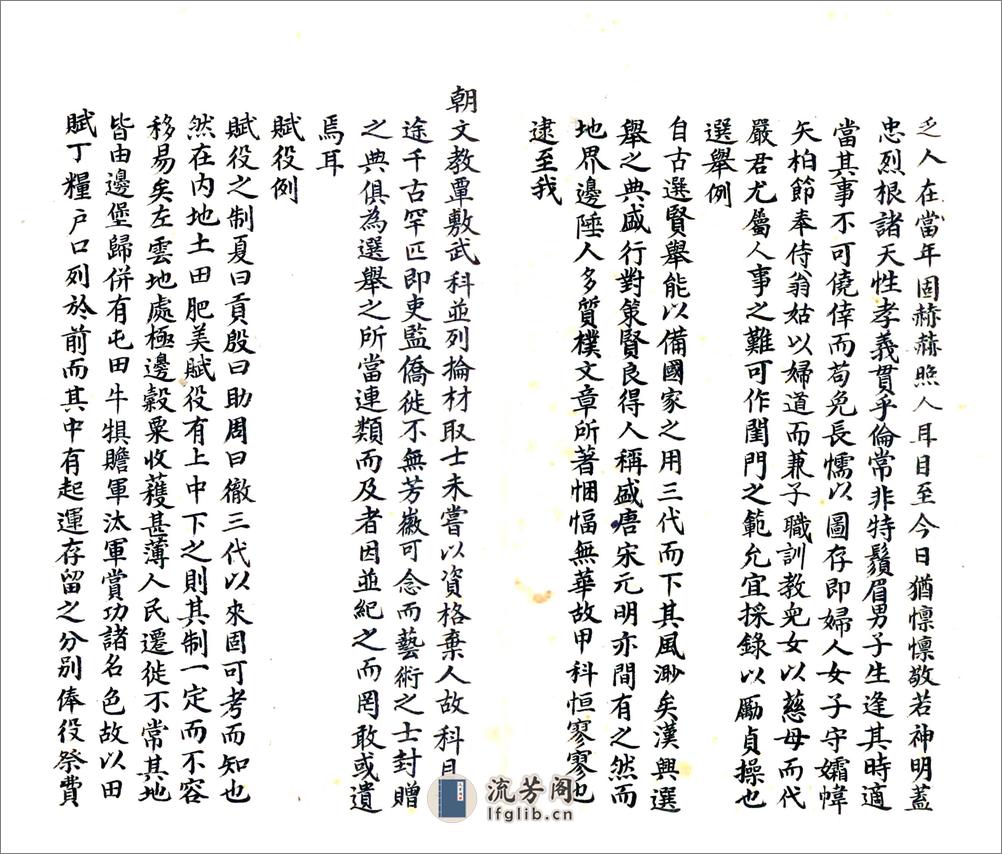 乏人在當年固赫赫照人耳目至今日猶懍懍敬若神明蓋
忠烈根諸天性孝義貫乎倫常非特鬚眉男子生逢其時適
當其事不可僥倖而苟免長懦以圖存即婦人女子守孀幃
矢柏節奉侍翁姑以婦道而兼子職訓教兒女以慈母而代
嚴君尤屬人事之難可作閨門之範允宜採錄以勵貞操也
選舉例
自古選賢舉能以備國家之用三代而下其風渺矣漢興選
舉之典盛行對策賢良得人稱盛唐宋元明亦間有之然而
地界邊陲人多質樸文章所著悃愊無華故甲科恒寥寥也
逮至我
朝文教覃敷武科並列掄材取士未嘗以資格棄人故科目
途千古罕匹即吏監僑徙不無芳徽可念而藝術之士封贈
之典俱為選舉之所當連類而及者因並紀之而罔敢或遺
焉耳
賦役例
賦役之制夏曰貢殷曰助周曰徹三代以來固可考而知也
然在內地土田肥美賦役有上中下之則其制一定而不容
移易矣左雲地處極邊穀粟收穫甚薄人民遷徙不常其地
皆由邊堡歸併有屯田牛犋贍軍汰軍賞功諸名色故以田
賦丁糧户口列於前而其中有起運存留之分別俸役祭費
流芳阁
lfglib.cn